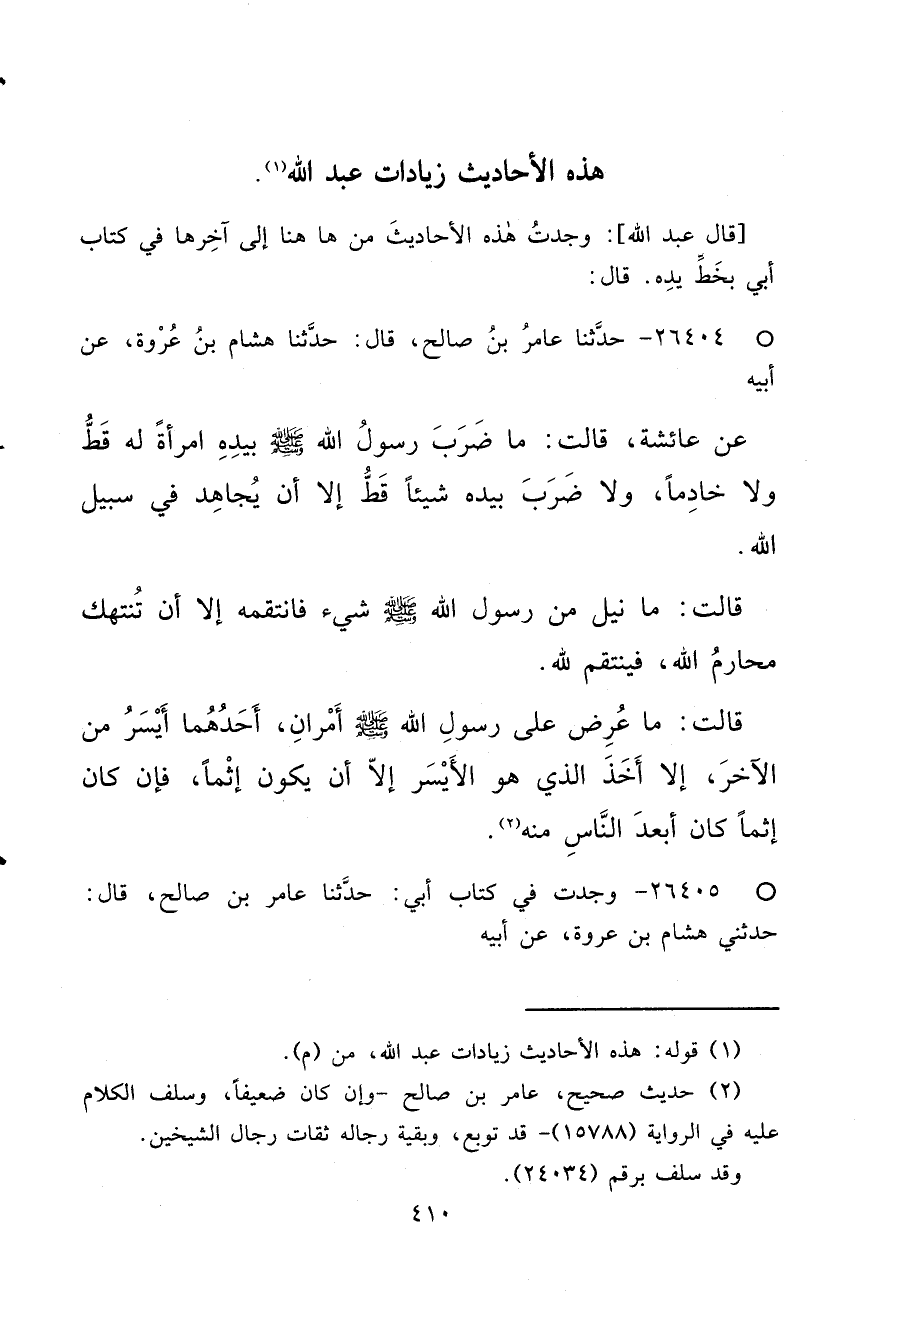 هذه الأحاديث زيادات عبد الله(١).
[قال عبد الله]: وجدتُ هٰذه الأحاديثَ من ها هنا إلى آخِرها في كتاب
أبي بخَطِّ يدِه. قال:
○ ٢٦٤٠٤- حدَّثنا عامرُ بنُ صالح، قال: حدَّثنا هشام بنُ عُرْوة، عن
أبيه
عن عائشة، قالت: ما ضَرَبَ رسولُ الله ﷺ بيدِهِ امرأةً له قَطُّ
ولا خادِماً، ولا ضَرَبَ بيده شيئاً قَطُّ إلا أن يُجاهِد في سبيل
الله.
قالت: ما نيل من رسول الله ﷺ شيء فانتقمه إلا أن تُنتهك
محارمُ الله، فينتقم لله.
قالت: ما عُرِض على رسولِ الله ﷺ أَمْرانِ، أَحَدُهُما أَيْسَرُ من
الآخرَ، إلا أَخَذَ الذي هو الأَيْسَر إلاّ أن يكون إثْماً، فإن كان
إثماً كان أبعدَ النَّاسِ منه(٢).
○ ٢٦٤٠٥- وجدت في كتاب أبي: حدَّثنا عامر بن صالح، قال:
حدثني هشام بن عروة، عن أبيه
(١) قوله: هذه الأحاديث زيادات عبد الله، من (م).
(٢) حديث صحيح، عامر بن صالح -وإن كان ضعيفاً، وسلف الكلام
عليه في الرواية (١٥٧٨٨)- قد توبع، وبقية رجاله ثقات رجال الشيخين.
وقد سلف برقم (٢٤٠٣٤).
٤١٠